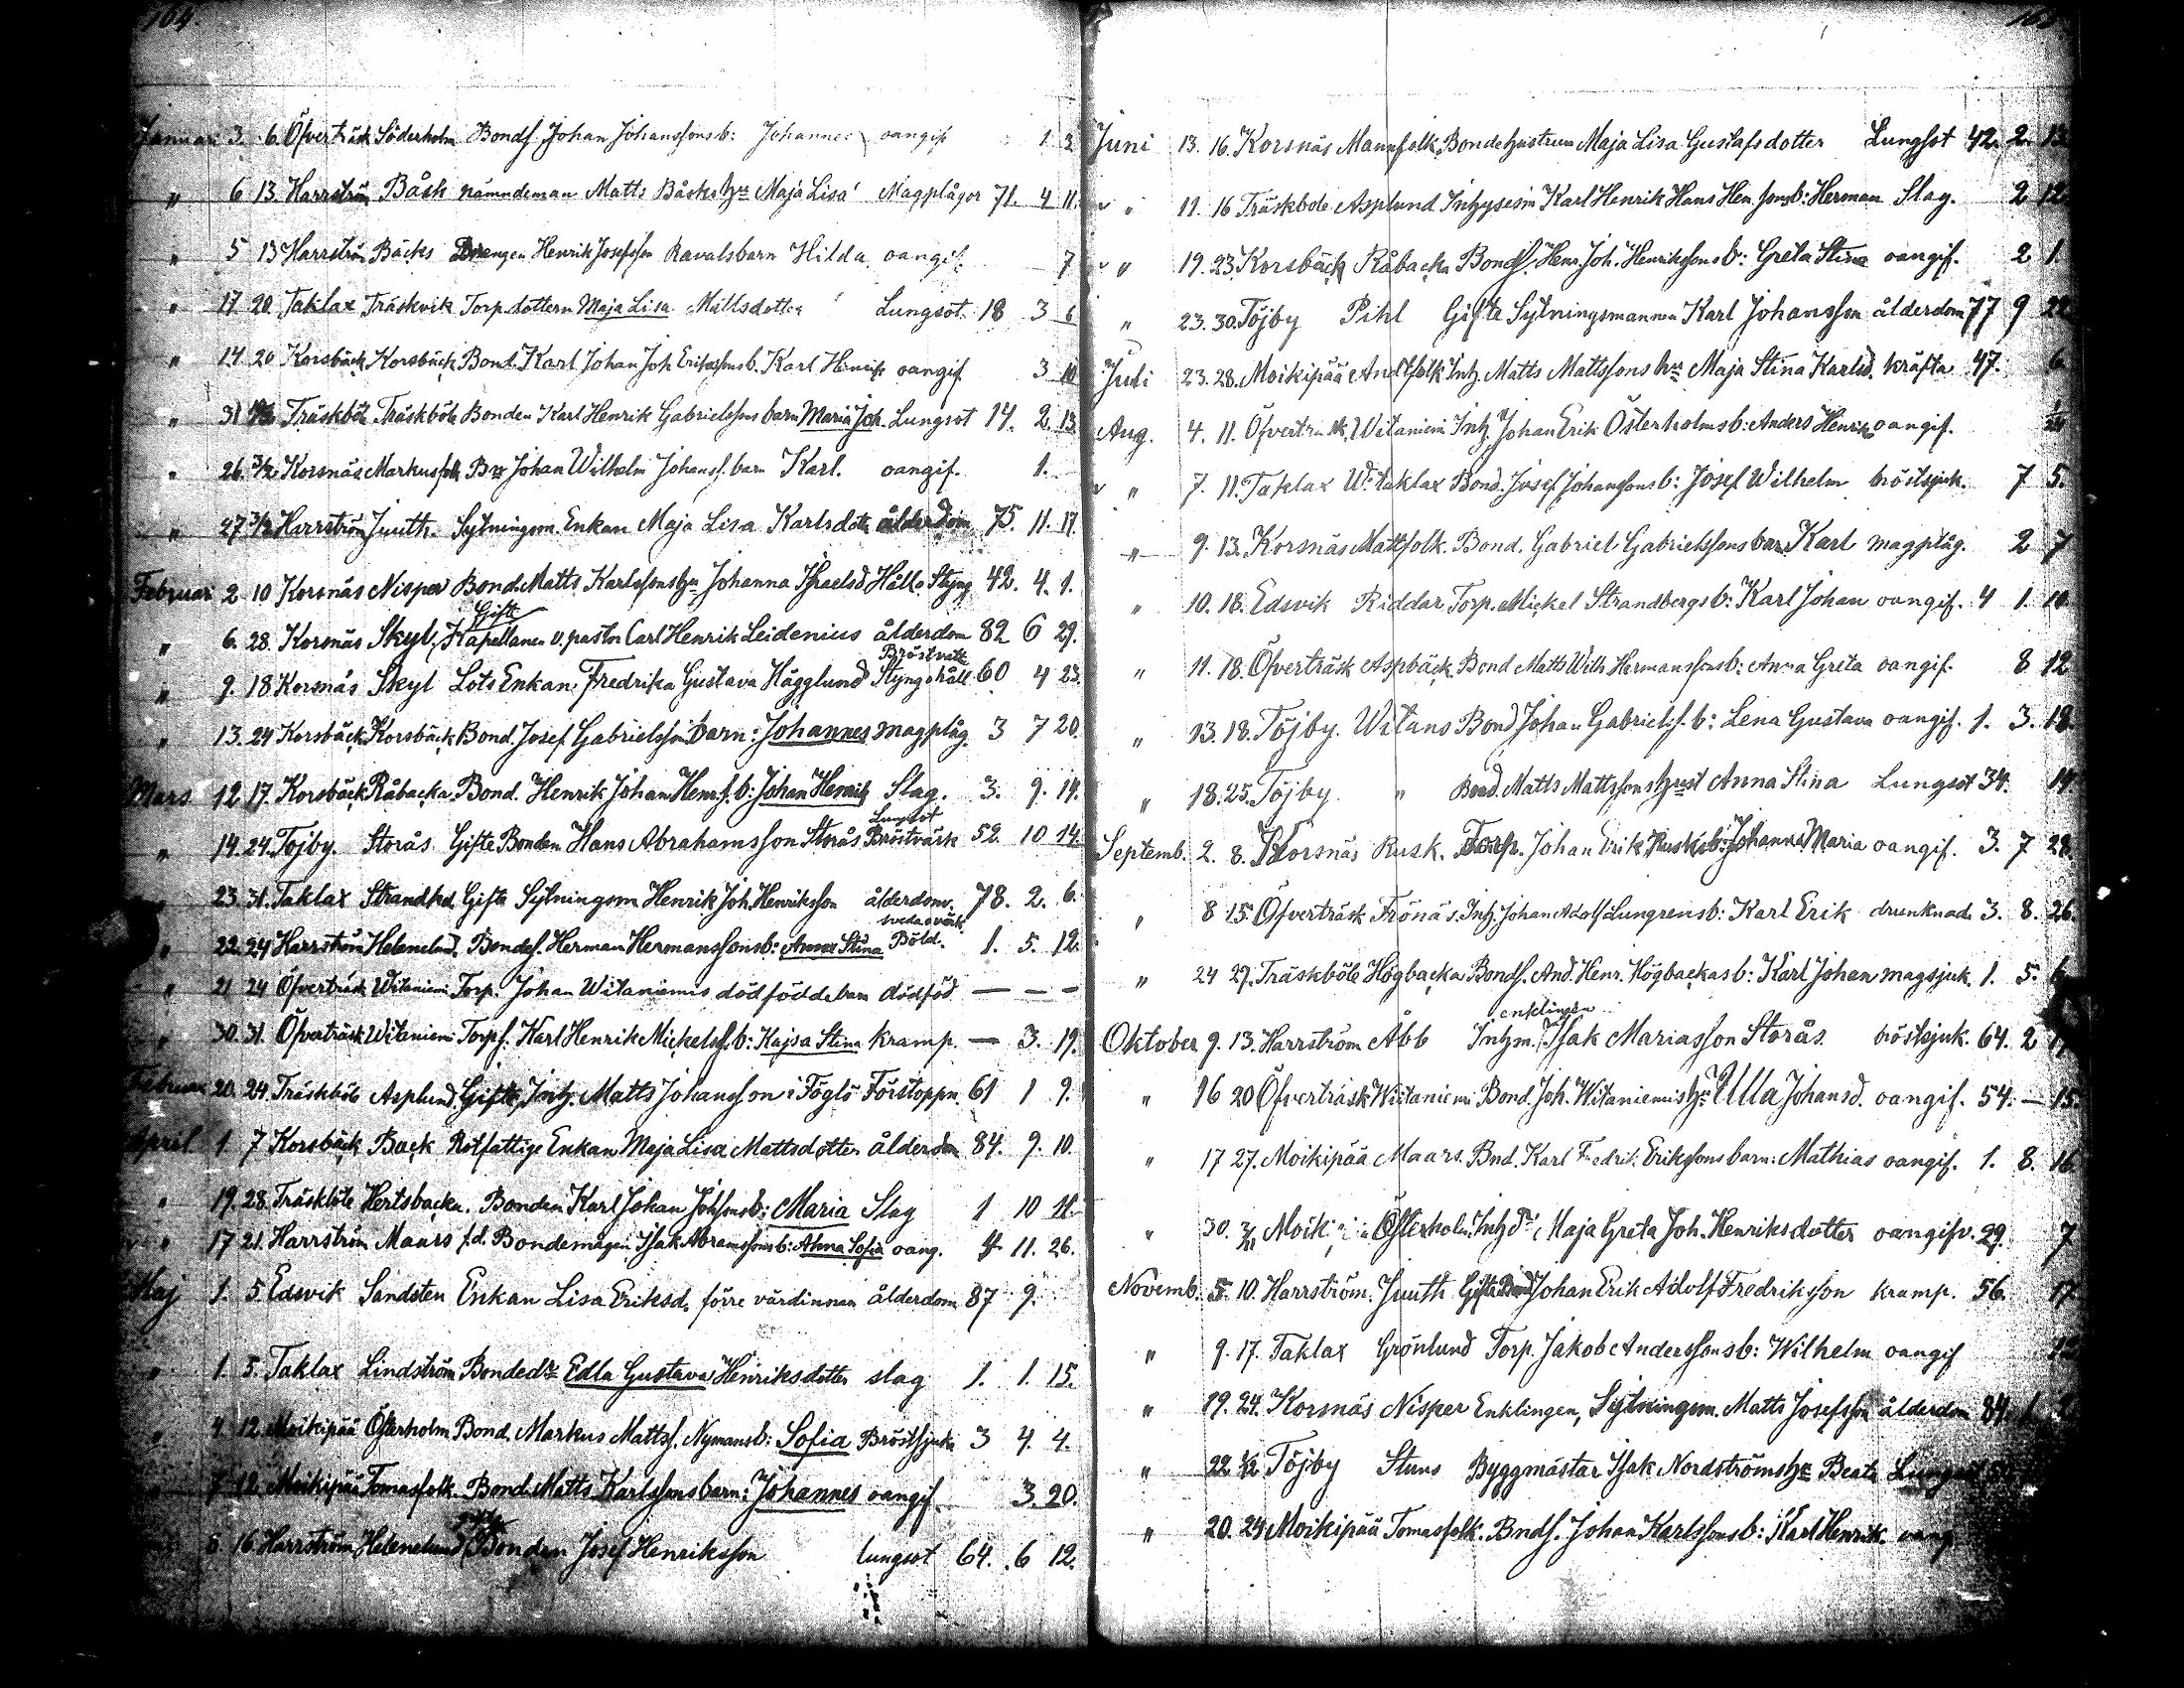 164.
Januari 3. 6. Öfverträsk Söderholm Bondf. Johan Johanssons b: Johannes oangif 1. 3
" 6 13. Harrström Båsk nämndeman Matts Båsks hu Maja Lisa Magplågor 71. 4 11.
" 5 13 Harrström Bäcks Drengen Henrik Josefsson Ravalsbarn Hilda oangif. 7
" 17 20. Taklax Träskvik Torp. dottern Maja Lisa Mattsdotter Lungsot 18 3 6
" 14. 20 Korsbäck Korsbäck Bond. Karl Johan Joh Erikssons b. Karl Henrik oangif 3 10
" 31 Träskböle Träskböle Bonden Karl Henrik Gabrielssons barn Maria Joh. Lungsot 14. 2. 13.
" 26. 3/2 Korsnäs Markusfolk Johan Wilhelm Johanss. barn Karl. oangif. 1.
" 27 3/2 Harrström Juuth. Sytningsm. Enkan Maja Lisa Karlsdotr ålderdom 75. 11. 17.
Februari 2 10 Korsnäs Nisper Bond. Matts Karlssons hu Johanna Israelsd Håll o. Styng 42. 4. 1.
Gift
" 6. 28. Korsnäs Skyl. Kapellanen v. pastor Carl Henrik Leidenius ålderdom 82 6 29.
Bröstvatt
" 9. 18 Korsnäs Skyl Lots Enkan Fredrika Gustava Hägglund Styng o håll 60 4 23.
" 13. 24 Korsbäck Korsbäck Bond. Josef Gabrielsson barn: Johannes magplåg. 3 7 20.
Mars 12 17. Korsbäck Råbacka Bond. Henrik Johan Henr.s. b: Johan Henrik Slag. 3. 9. 19.
Lungsot
" 14. 24. Töjby. Storås Gifte Bonden Hans Abrahamsson Storås Bröstvärk 52 10 14.
23. 31. Taklax Strandhed Gifte Sytningsm Henrik Joh. Henriksson ålderdomv. 78. 2. 6.
sveda o värk
" 22. 24 Harrström Helenelund. Bondes. Herman Hermanssons b: Anna Stina Böld. 1. 5. 12.
" 21 24 Öfverträsk Witaniemi Torp. Johan Witaniemis dödfödde barn dödföd. — — —
" 30. 31. Öfverträsk Witaniemi Torpf. Karl Henrik Mickelsf. b: Kajsa Stina kramp. — 3. 19.
Februari 20. 24. Träskböle Asplund. Gifte, Inh. Matts Johansson i Föglö Förstoppn. 61 1 9.
April 1. 7 Korsbäck Back Rotfattige Enkan Maja Lisa Mattsdotter ålderdom 84. 9. 10.
" 19. 28. Träskböle Hertsbacka. Bonden Karl Johan Johssons b: Maria Slag 1 10 11.
" 17 21. Harrström Maars f.d. Bondemågen Isak Abramssons b: Anna Sofia oang. 4 11. 26.
Maj 1. 5. Edsvik Sandsten Enkan Lisa Eriksd. förre värdinnan ålderdom 87 9.
" 1. 5. Taklax Lindström Bondedr Edla Gustava Henriksdotter slag 1. 1. 15.
" 4 12 Moikipää Österholm Bond. Markus Mattss. Nymans b: Sofia Bröstsjuka 3 4. 4.
" 7 12 Moikipää Tomasfolk. Bond. Matts Karlssons barn: Johannes oangif. 3. 20.
6 16 Harrström Helenelund Bonden Josef Henriksson lungsot 64. 6 12.
165
Juni 13. 16. Korsnäs Mannfolk Bondehustrun Maja Lisa Gustafsdotter Lungsot 42. 2. 13.
" 11. 16 Träskböle Asplund Inhysesm Karl Henrik Hans Hen.sons b: Herman Slag. 2 12
" 19. 23. Korsbäck Råbacka Bondf. Henr. Joh. Henrikssons b: Greta Stina oangif. 2 1.
" 23. 30. Töjby Pihl Gifte Sytningsmannen Karl Johansson ålderdom 77 9 22
Juli 23. 28. Moikipää Andtfolk Inh. Matts Mattssons hu Maja Stina Karlsd. kräfta 47. 6.
Aug. 4. 11. Öfverträsk, Witaniemi Inh. Johan Erik Österholms b: Anders Henrik oangif.
" 7. 11. Taklax W: taklax Bond. Josef Johanssons b: Josef Wilhelm bröstsjuk. 7 5.
" 9. 13. Korsnäs Mattfolk. Bond. Gabriel Gabrielssons barn Karl magplåg. 2 7
" 10. 18. Edsvik Riddar Torp. Mickel Strandbergs b: Karl Johan oangif. 4 1. 10
" 11. 18. Öfverträsk Aspbäck Bond Matts Wilh Hermanssons b: Anna Greta oangif. 8 12
" 13. 18. Töjby. Witans Bond Johan Gabrielss. b: Lena Gustava oangif. 1. 3. 18.
" 18. 25. Töjby. " Bond. Matts Mattssons hust Anna Stina Lungsot 34. 19
Septemb. 2. 8. Korsnäs Rusk. Torp. Johan Erik Rusks b: Johanna Maria oangif. 3. 7 28.
" 8 15. Öfverträsk Frönäs. Inh. Johan Adolf Lungrens b: Karl Erik drunknade 3. 8. 26.
" 24 27. Träskböle Högbacka Bondf. And. Henr. Högbackas b: Karl Johan magsjuk. 1. 5. 6
enklingen
Oktober 9. 13. Harrström Abb Inhm. Isak Mariasson Storås. bröstsjuk. 64. 2
" 16 20 Öfverträsk Witaniemi Bond. Joh. Witaniemis hu Ulla Johansd. oangif. 54. — 15.
" 17 27. Moikipää Maars. Bnd. Karl Fredrik Erikssons barn: Mathias oangif. 1. 8. 16.
" 30. Moik Österholm Inh dr Maja Greta Joh. Henriksdotter oangifv. 29. 7
Novemb. 5. 10. Harrström. Juuth Gifte Bond Johan Erik Adolf Fredriksson kramp. 56. 17
" 9. 17. Taklax Grönlund Torp. Jakob Anderssons b: Wilhelm oangif
" 19. 24. Korsnäs Nisper Enklingen, Sytningsm. Matts Josefsson ålderdom 84. 1.
" 22 Töjby Stuns Byggmästar Isak Nordströms hu Beata Lungsot
" 20. 24 Moikipää Tomasfolk. Bndf. Johan Karlssons b: Karl Henrik. oang